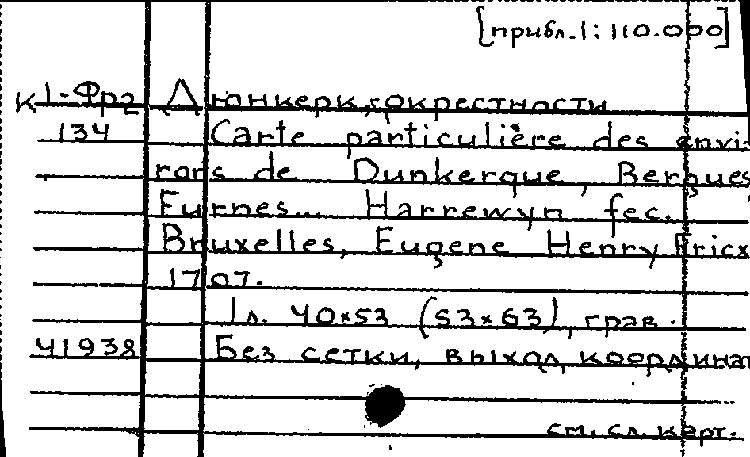 [прибл. 1:110.000]
К 1-Фр2 Дюнкерк, окрестности
134 Carte particulière des envi-
rons de Dunkerque, Bergues
Furnes... Harrewyn fec.
Bruxelles, Eugene Henry Fricx
1707.
1 л. 40×53 (53×63), грав.
41938 Без сетки, выход. координат
см. сл. карт.